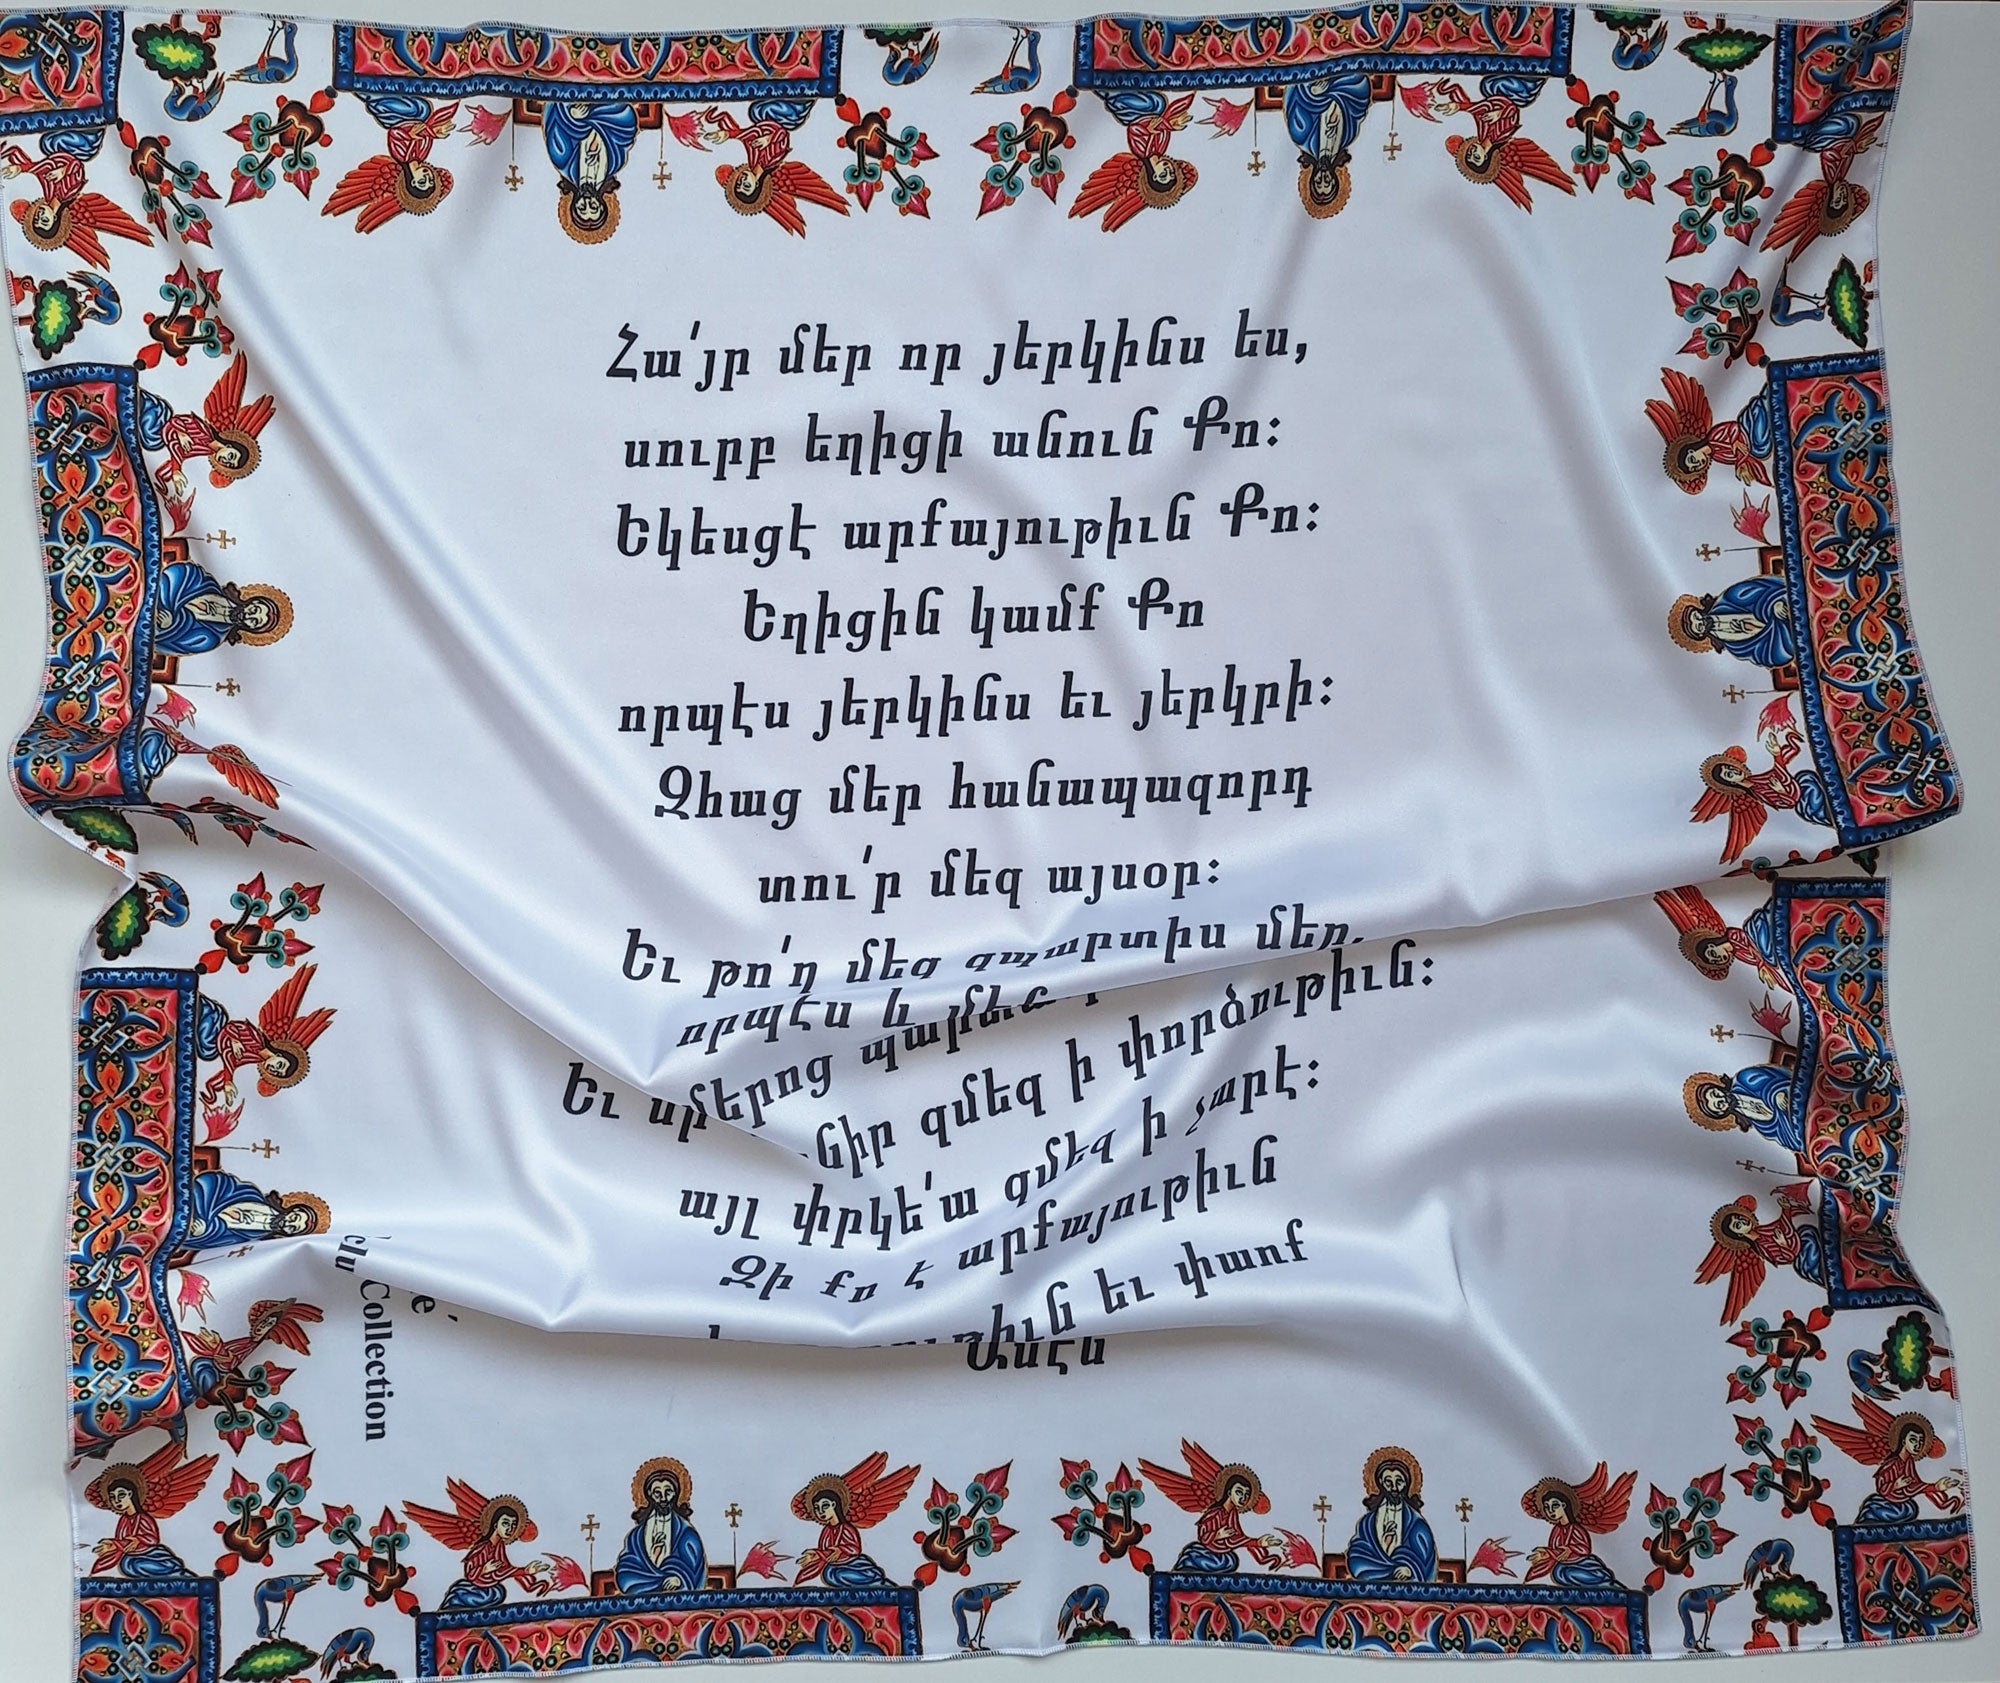 Հա՛յր մեր որ յերկինս ես,
սուրբ եղիցի անուն Քո:
Եկեսցէ արքայութիւն Քո:
Եղիցին կամք Քո
որպէս յերկինս եւ յերկրի:
Զհաց մեր հանապազորդ
տու՛ր մեզ այսօր:
Եւ թո՛ղ մեզ զպարտիս մեր,
որպէս և
մերոց
Եւ զմեզ ի փորձութիւն:
այլ փրկե՛ա զմեզ ի չարէ:
Զի քո է արքայութիւն
եւ փառք
Ամէն
Collection